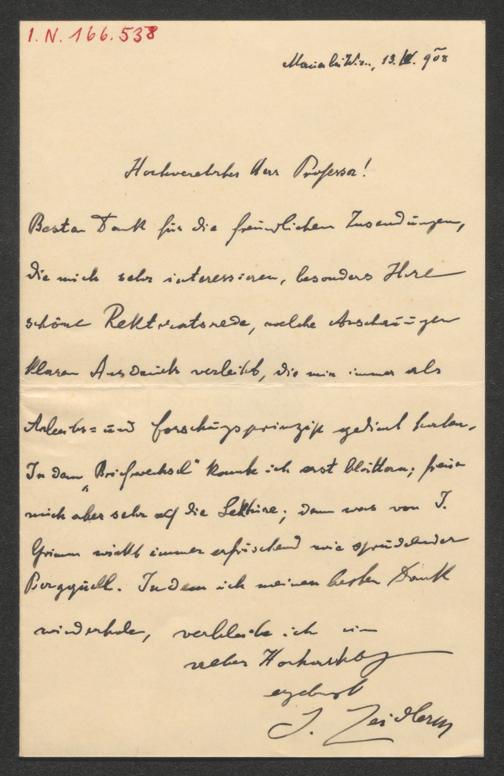 I.N. 166.538
Maria bei Wien, 13. IX. 908
Hochverehrter Herr Professor!
Besten Dank für die freundlichen Zusendungen,
die mich sehr interessieren, besonders Ihre
schöne Rektoratsrede, welche Anschauungen
klaren Ausdruck verleiht, die mir immer als
Arbeits= und Forschungsprinzip gedient haben.
In dem „Briefwechsel" konnte ich erst blättern; freue
mich aber sehr auf die Lektüre; denn was von J.
Grimm wirkt immer erfrischend wie sprudelnder
Bergquell. Indem ich meinen besten Dank
wiederhole, verbleibe ich in
Hochachtung
ergebenst
J. Zeidler